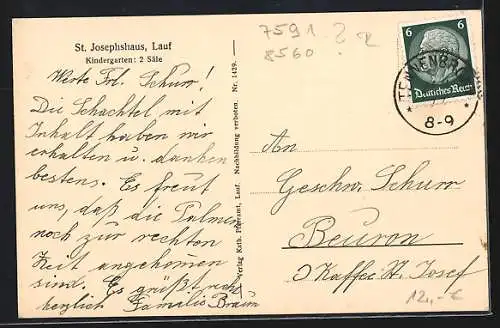 St. Josephshaus, Lauf
Kindergarten: 2 Säle
Werte Frl. Schurr!
Die Schachtel mit
Inhalt haben wir
erhalten u. danken
bestens. Es freut
uns, daß die Palmen
noch zur rechten
Zeit angekommen
sind. Es grüßt recht
herzlich Familie Braun
Verlag Kath. Pfarramt, Lauf. Nachbildung verboten. Nr. 1429.
7591 ?
8560
6 6
Deutsches Reich
8-9
An
Geschw. Schurr
Beuron
Kaffee St. Josef
12,-€